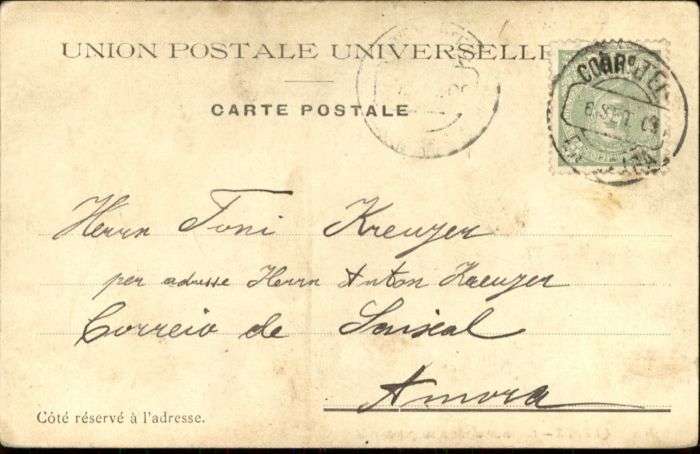 UNION POSTALE UNIVERSELLE
CARTE POSTALE
CORR.º TEL
6 SET 0
Herrn Toni Kreuzer
per adresse Herrn Anton Kreuzer
Correio de Seixal
Amora
Côté réservé à l'adresse.